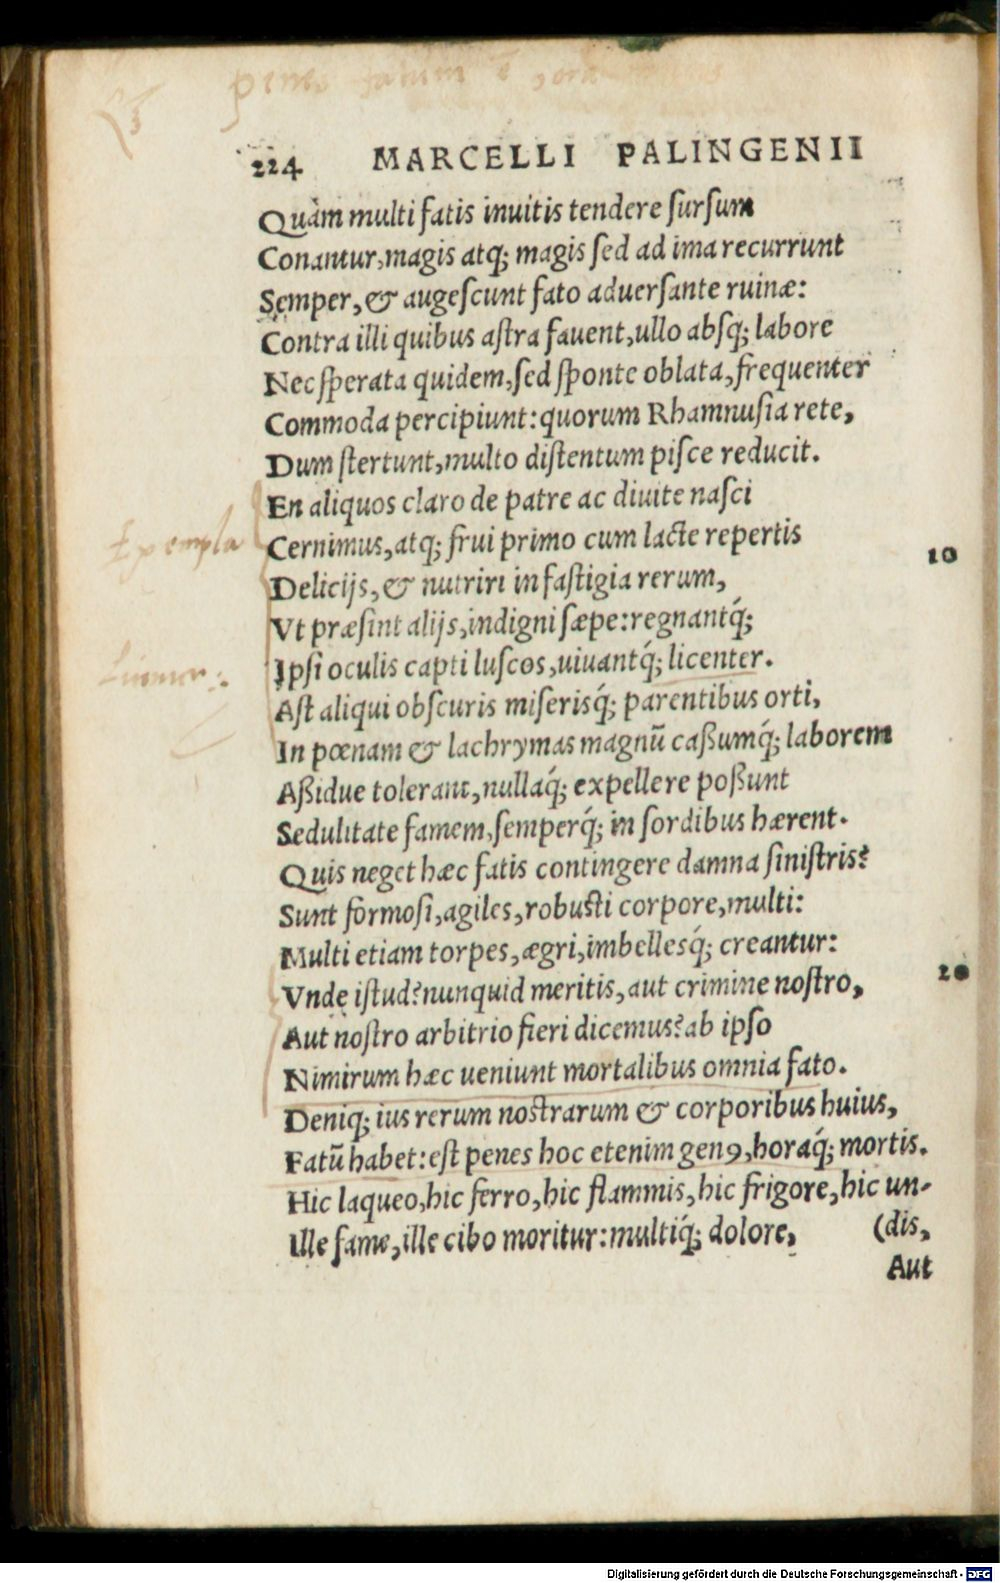 224 MARCELLI PALINGENII
Quàm multi fatis inuitis tendere sursum
Conantur, magis atq; magis sed ad ima recurrunt
Semper, & augescunt fato aduersante ruinæ:
Contra illi quibus astra fauent, ullo absq; labore
Nec sperata quidem, sed sponte oblata, frequenter
Commoda percipiunt: quorum Rhamnusia rete,
Dum stertunt, multo distentum pisce reducit.
En aliquos claro de patre ac diuite nasci
Exempla
Cernimus, atq; frui primo cum lacte repertis
10
Delicijs, & nutriri in fastigia rerum,
Vt præsint alijs, indigni sæpe: regnantq́;
Ipsi oculis capti luscos, uiuantq́; licenter.
Ast aliqui obscuris miserisq́; parentibus orti,
In pœnam & lachrymas magnũ caßumq́; laborem
Aßidue tolerant, nullaq́; expellere poßunt
Sedulitate famem, semperq́; in sordibus hærent.
Quis neget hæc fatis contingere damna sinistris?
Sunt formosi, agiles, robusti corpore, multi:
Multi etiam torpes, ægri, imbellesq́; creantur:
Vnde istud? nunquid meritis, aut crimine nostro,
20
Aut nostro arbitrio fieri dicemus? ab ipso
Nimirum hæc ueniunt mortalibus omnia fato.
Deniq; ius rerum nostrarum & corporibus huius,
Fatũ habet: est penes hoc etenim genꝰ, horaq́; mortis.
Hic laqueo, hic ferro, hic flammis, hic frigore, hic un-
Ille fame, ille cibo moritur: multiq́; dolore, (dis,
Aut
Digitalisierung gefördert durch die Deutsche Forschungsgemeinschaft - DFG